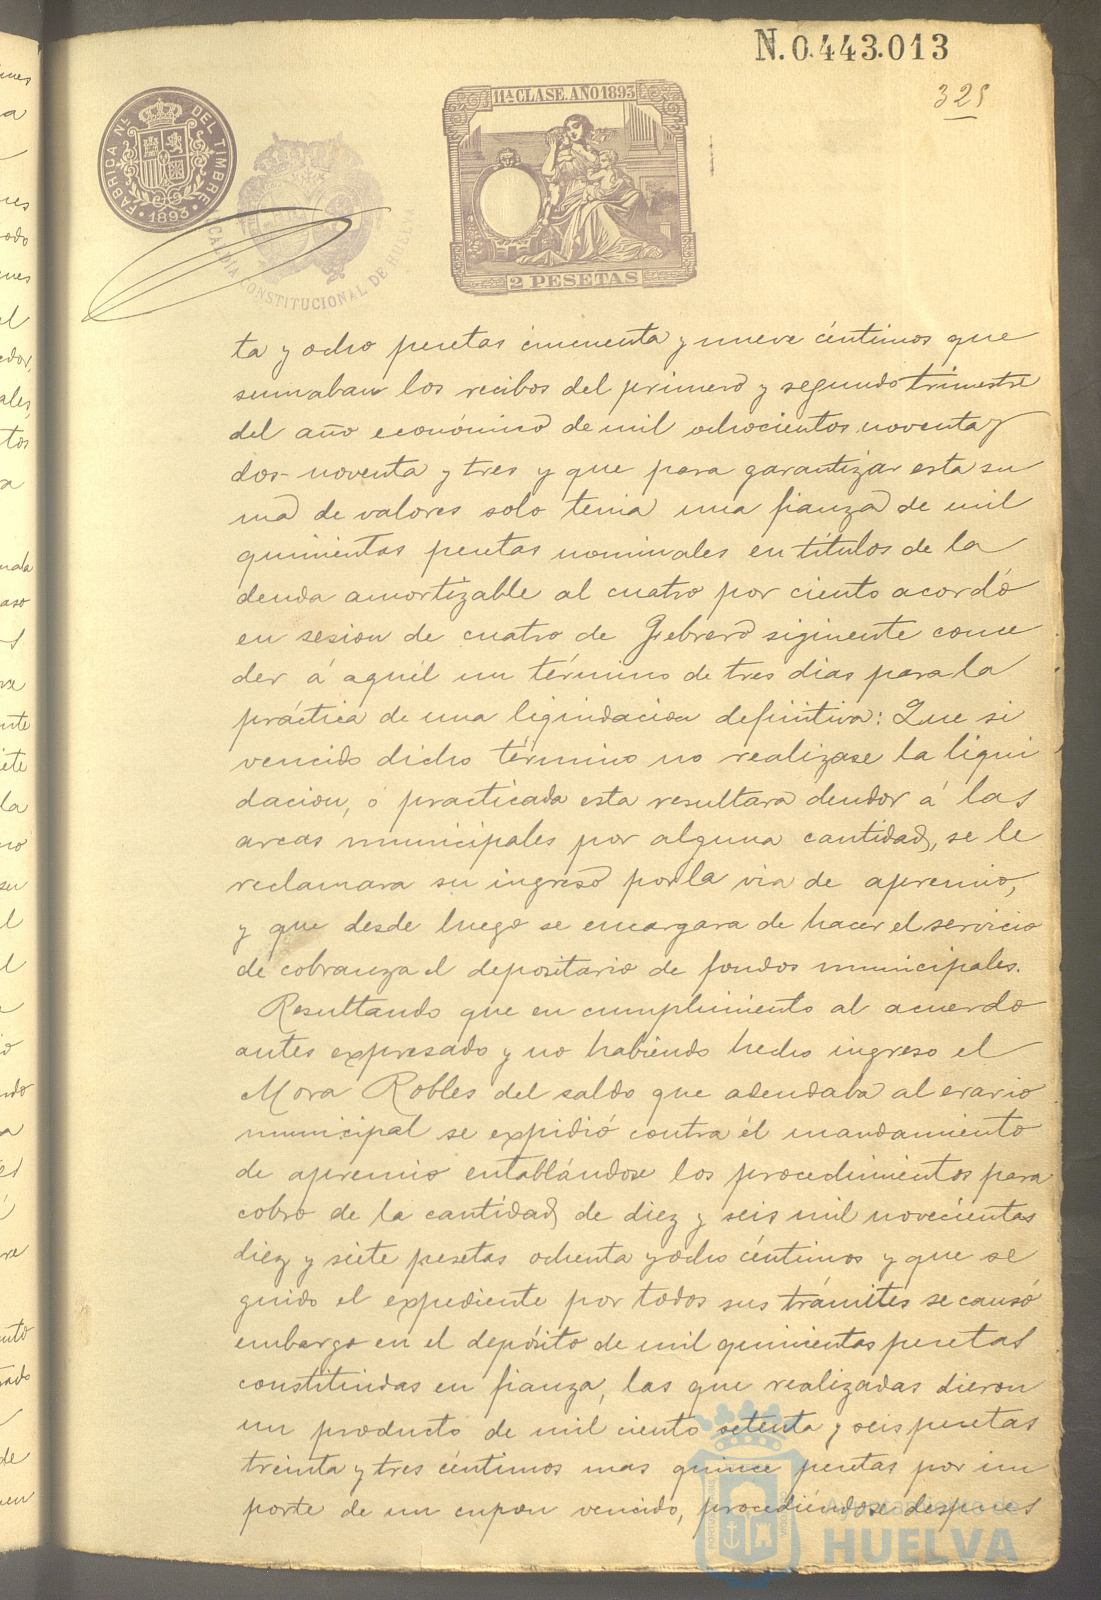 N. 0.443.013
325
FABRICA NAL. DEL TIMBRE
1893
11ª CLASE. AÑO 1893
2 PESETAS
ALCALDIA CONSTITUCIONAL DE HUELVA
ta y ocho pesetas cincuenta y nueve céntimos que
sumaban los recibos del primero y segundo trimestre
del año económico de mil ochocientos noventa y
dos-noventa y tres y que para garantizar esta su
ma de valores solo tenia una fianza de mil
quinientas pesetas nominales en titulos de la
deuda amortizable al cuatro por ciento acordó
en sesion de cuatro de Febrero siguiente conce
der á aquél un término de tres dias para la
práctica de una liquidacion definitiva: Que si
vencido dicho término no realizase la liqui
dacion, ó practicada esta resultara deudor á las
arcas municipales por alguna cantidad, se le
reclamara su ingreso por la via de apremio,
y que desde luego se encargara de hacer el servicio
de cobranza el depositario de fondos municipales.
Resultando que en cumplimiento al acuerdo
antes expresado y no habiendo hecho ingreso el
Mora Robles del saldo que adeudaba al erario
municipal se expidió contra él mandamiento
de apremio entablándose los procedimientos para
cobro de la cantidad de diez y seis mil novecientas
diez y siete pesetas ochenta y ocho céntimos y que se
guido el expediente por todos sus trámites se causó
embargo en el depósito de mil quinientas pesetas
constituidas en fianza, las que realizadas dieron
un producto de mil ciento setenta y seis pesetas
treinta y tres céntimos mas quince pesetas por im
porte de un cupon vencido, procediéndose despues
Ayuntamiento de
HUELVA